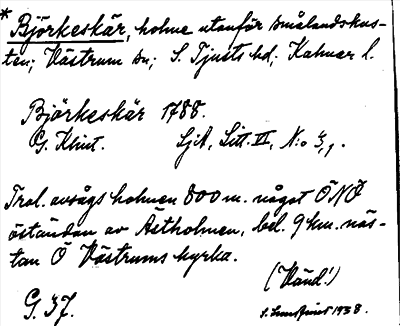 * Björkeskär, holme utanför Smålandskus-
ten; Västrum sn; S. Tjusts hd; Kalmar l.
Björkeskär 1788.
G. Klint. Sjök, Litt. III, N:o 3,1.
Trol. avsågs holmen 800 m. något ÖNÖ
östandan av Aetholmen, bel. 9 km. näs-
tan Ö Västrums kyrka.
(Vänd!)
G. 37. 1938.